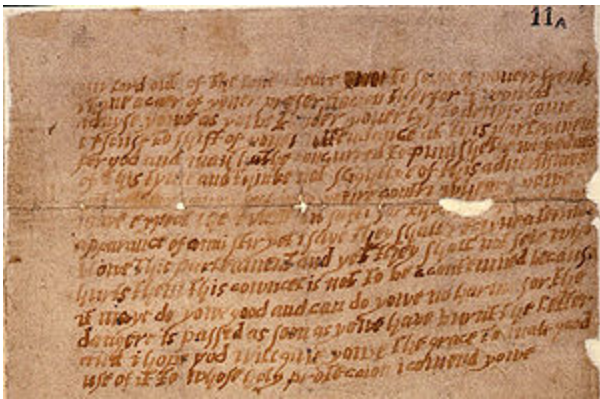 11A
lord out of the loue i beare to some of youere frends
i haue a caer of youer preseruacion therfor i would
aduyse yowe as yowe tender youer lyf to deuyse some
excuse to shift of youer attendance at this parleament
for god and man hathe concurred to punishe the wickednes
of this tyme and thinke not slightlye of this aduertisment
youre contri wheare yowe
maye expect the euent in safti for
apparance of anni stir yet i saye they shall receyue a terribel
blowe this parleament and yet they shall not seie who
hurts them this cowncel is not to be contemned because
it maye do yowe good and can do yowe no harme for the
dangere is passed as soon as yowe have burnt the letter
and i hope god will giue yowe the grace to mak good
use of it to whose holy proteccion i comend yowe